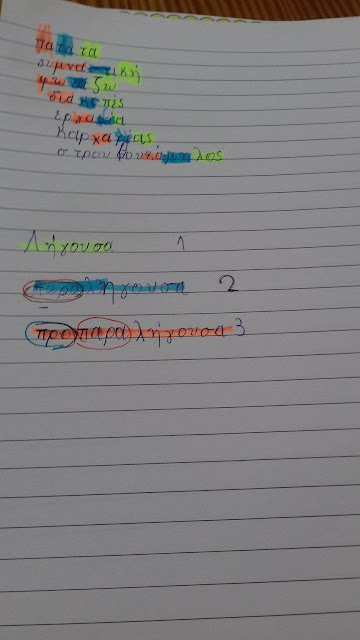 πατάτα
γυμναστική
φωνάζω
διακοπές
εργαλεία
καρχαρίας
στρουθοκάμηλος
Λήγουσα 1
παραλήγουσα 2
προπαραλήγουσα 3